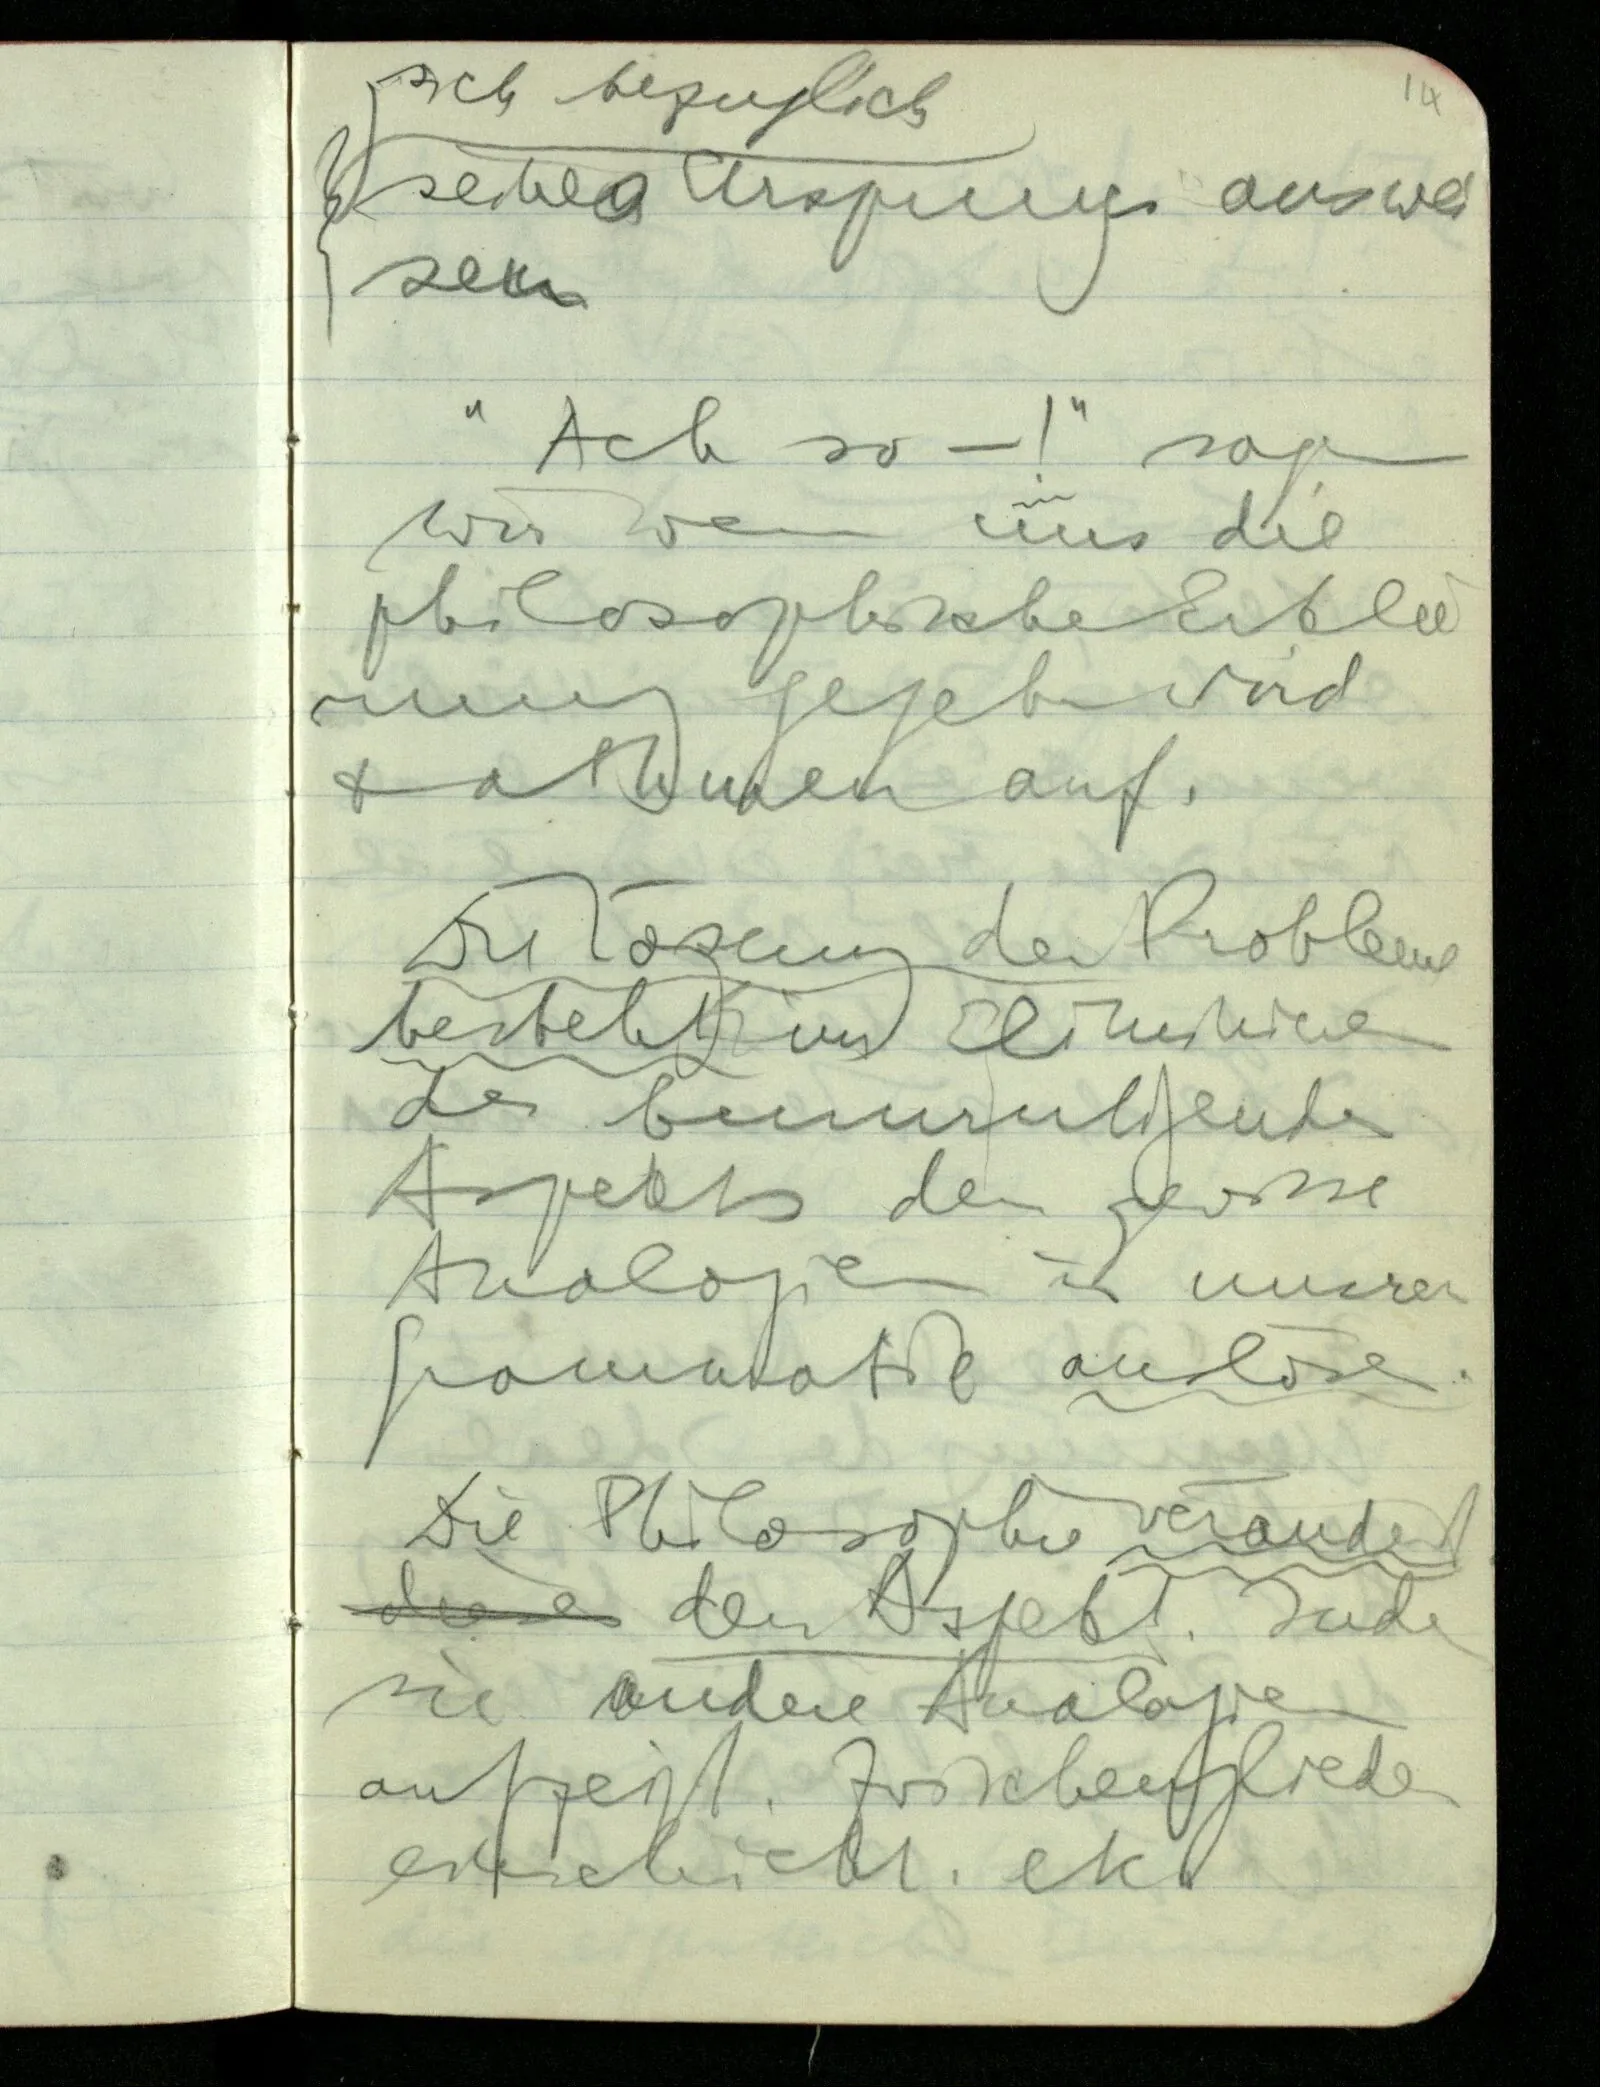 14
sich bezüglich
seines Ursprungs auswei
sen
"Ach so —!" sagen
wir wenn uns die
philosophische Erklä
rung gegeben wird
& atmen auf.
Die Lösung der Probleme
besteht im Eliminieren
des beunruhigenden
Aspekts den gewisse
Analogien in unserer
Grammatik auslösen.
Die Philosophie verändert
diesen den Aspekt. Indem
sie andere Analogien
aufzeigt. Zwischenglieder
einschiebt. etc.